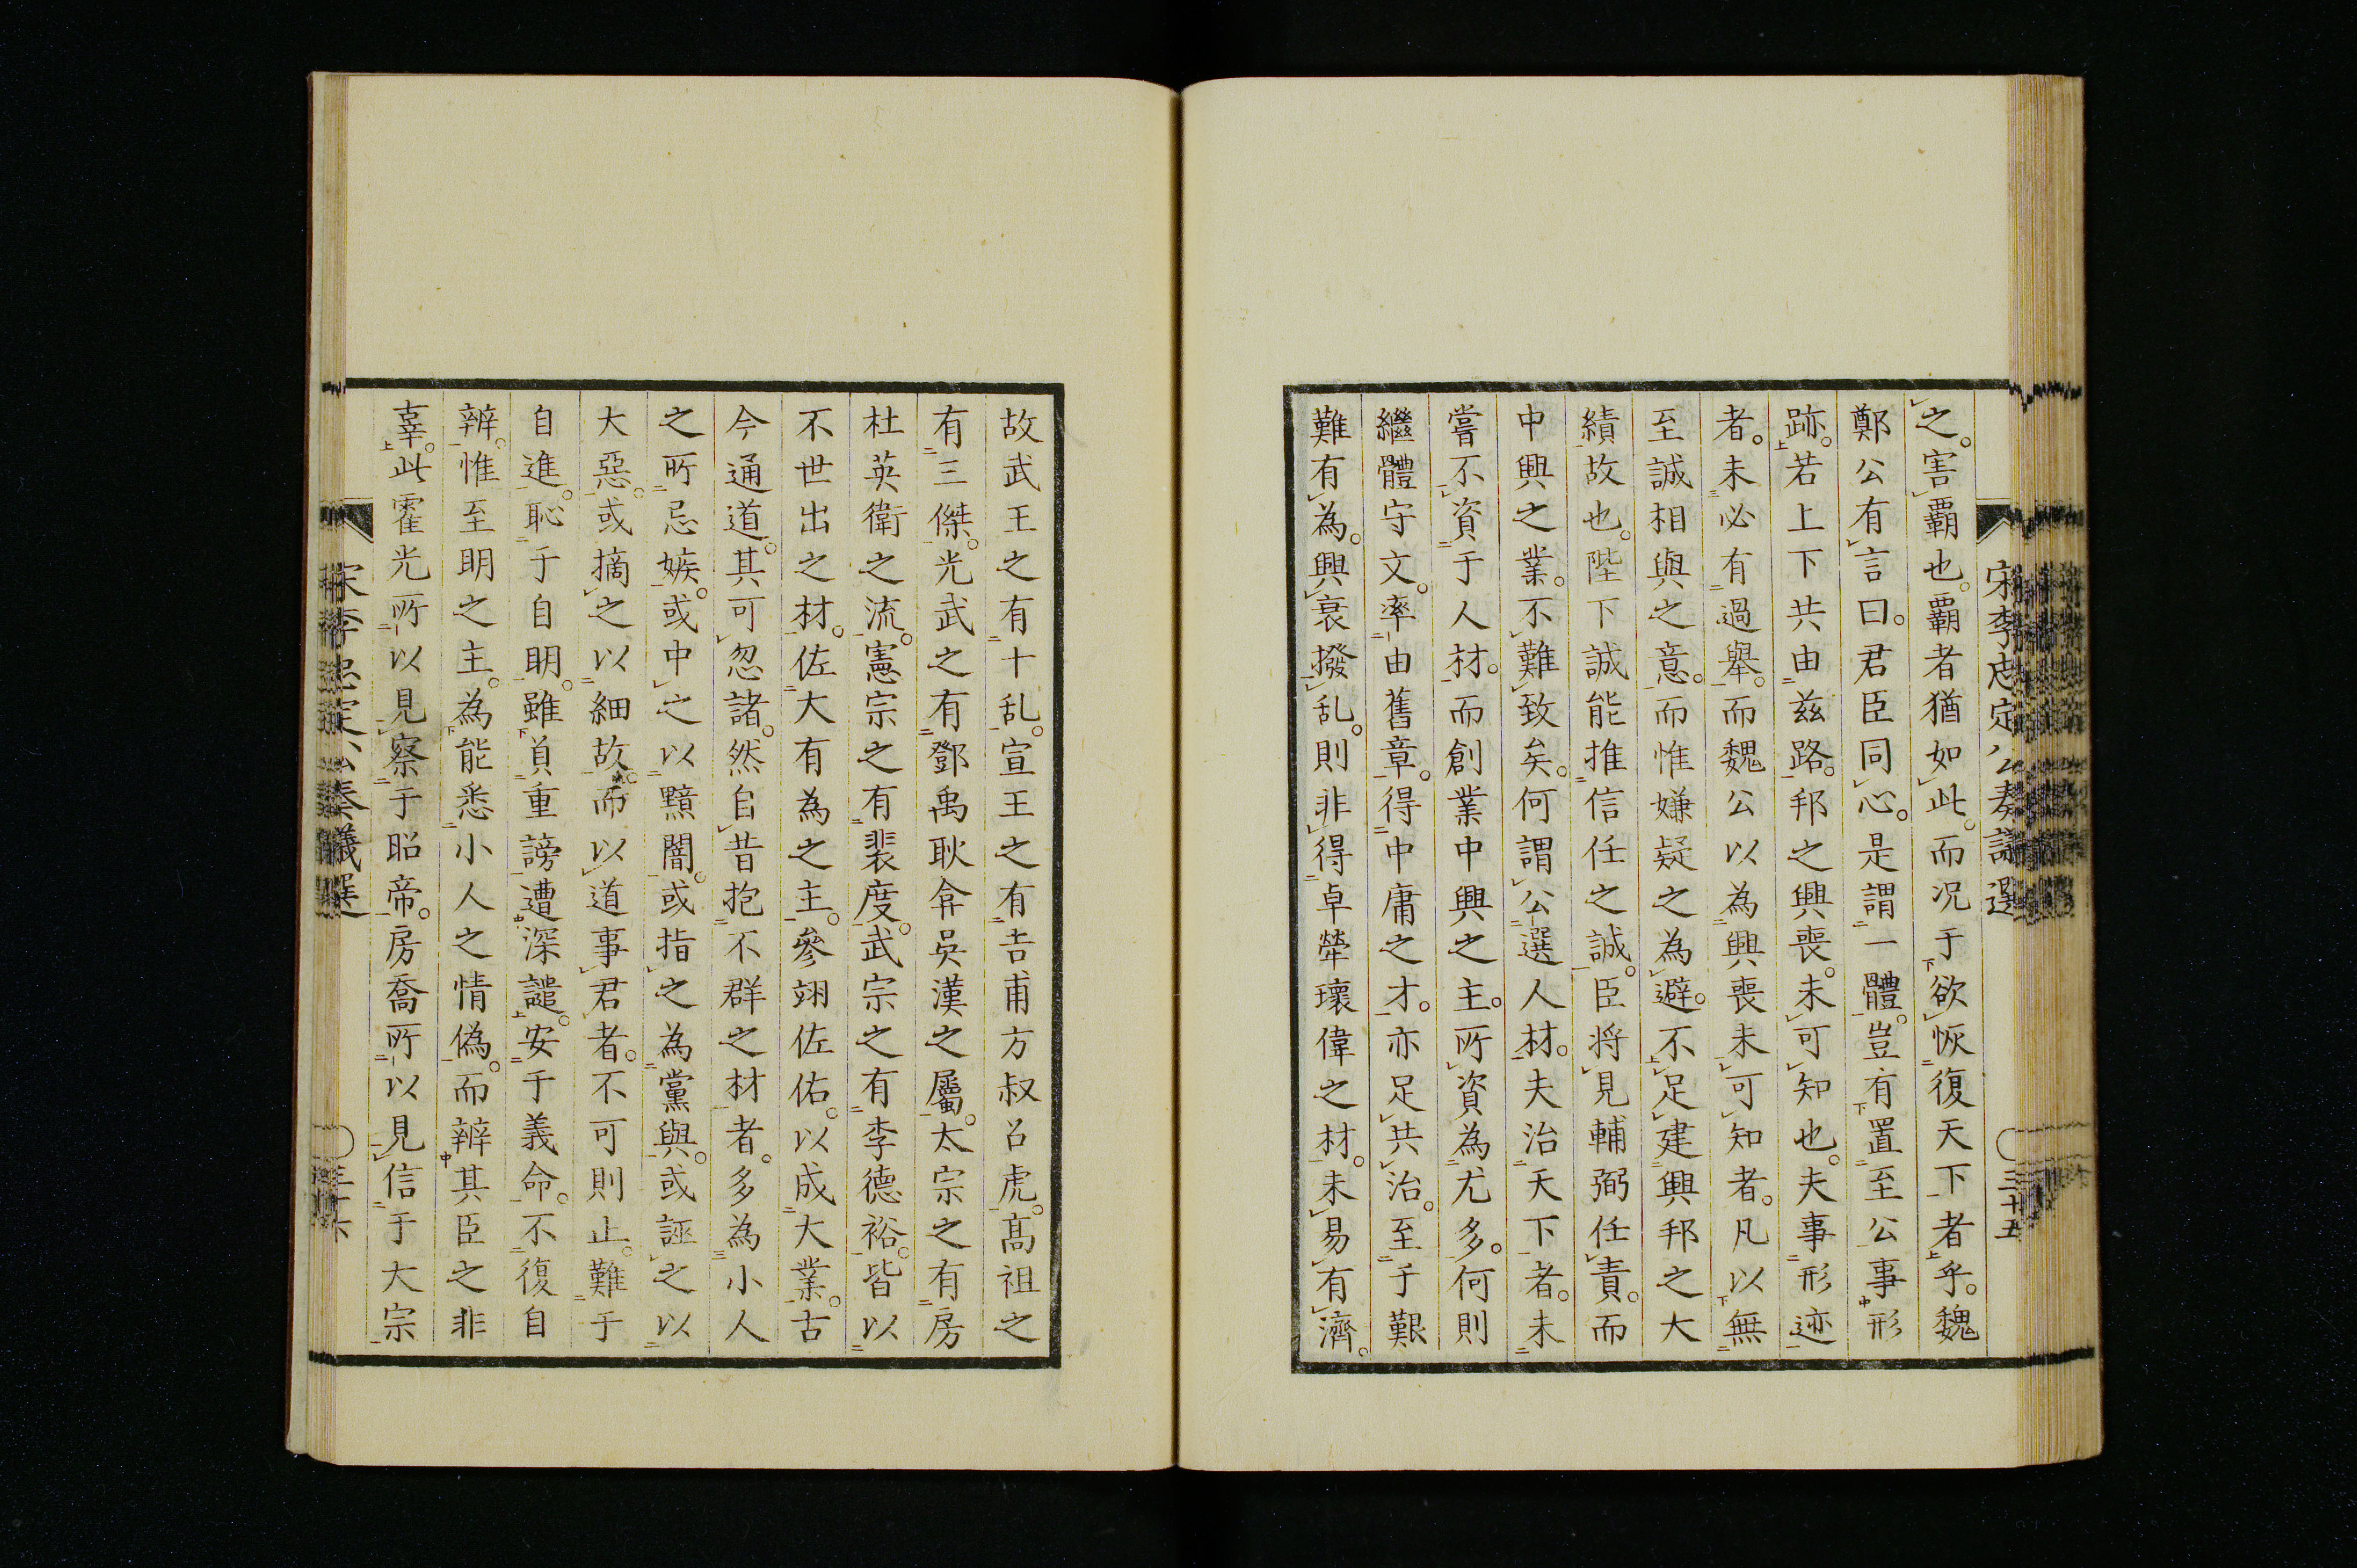 宋李忠定公奏議選
三十五
之。害覇也。覇者猶如此。而況于欲恢復天下者乎。魏
鄭公有言曰。君臣同心。是謂一體。豈有置至公事形
跡。若上下共由兹路。邦之興喪。未可知也。夫事形迹
者。未必有過舉。而魏公以為興喪未可知者。凡以無
至誠相與之意。而惟嫌疑之為避。不足建興邦之大
績故也。陛下誠能推信任之誠。臣将見輔弼任責。而
中興之業。不難致矣。何謂公選人材。夫治天下者。未
嘗不資于人材。而創業中興之主。所資為尤多。何則
繼體守文。率由舊章。得中庸之才。亦足共治。至于艱
難有為。興衰撥乱。則非得卓犖瓌偉之材。未易有濟。
故武王之有十乱。宣王之有吉甫方叔召虎。髙祖之
有三傑。光武之有鄧禹耿弇吳漢之屬。太宗之有房
杜英衛之流。憲宗之有裴度。武宗之有李德裕。皆以
不世出之材。佐大有為之主。參翊佐佑。以成大業。古
今通道。其可忽諸。然自昔抱不群之材者。多為小人
之所忌嫉。或中之以黯闇。或指之為黨與。或誣之以
大惡。或摘之以細故。而以道事君者。不可則止。難于
自進。恥于自明。雖負重謗遭深譴。安于義命。不復自
辨。惟至明之主。為能悉小人之情偽。而辨其臣之非
辜。此霍光所以見察于昭帝。房喬所以見信于大宗
宋李忠定公奏議選
三十六